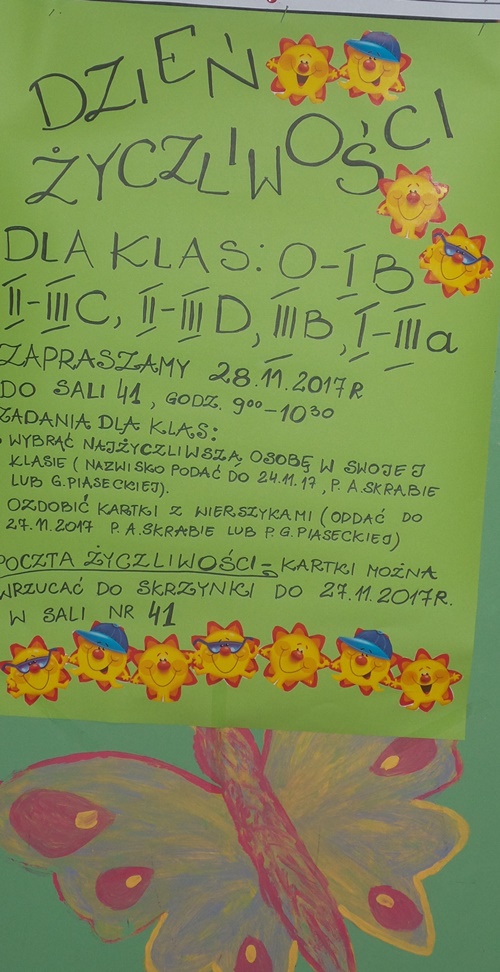 DZIEŃ
ŻYCZLIWOŚCI
DLA KLAS: O-I B
II-III C, II-III D, III B, I-III a
ZAPRASZAMY 28.11.2017R
DO SALI 41, GODZ. 9⁰⁰-10³⁰
ZADANIA DLA KLAS:
• WYBRAĆ NAJŻYCZLIWSZĄ OSOBĘ W SWOJEJ
KLASIE (NAZWISKO PODAĆ DO 24.11.17, P. A.SKRABIE
LUB G.PIASECKIEJ).
OZDOBIĆ KARTKI Z WIERSZYKAMI (ODDAĆ DO
27.11.2017 P. A.SKRABIE LUB P.G.PIASECKIEJ)
POCZTA ŻYCZLIWOŚCI - KARTKI MOŻNA
WRZUCAĆ DO SKRZYNKI DO 27.11.2017R.
W SALI NR 41